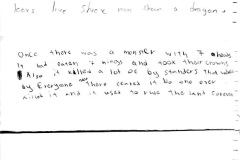 than a dragon.
Once there was a monster with 7 heads
It had eaten 7 kings and took their crowns
Also it killed a lot of by standers that
by Everyone there feared it no one ever
killed it and it used to rule the land forever